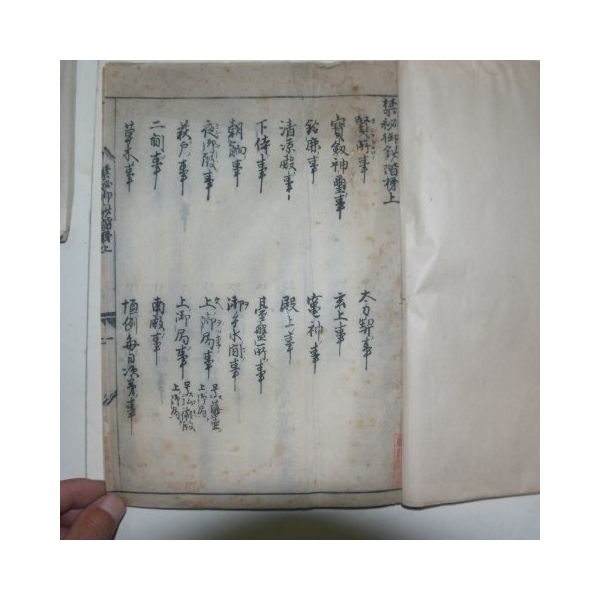 禁秘御鈔階梯上
賢所事
太刀契事
寶剱神璽事
玄上事
鈴鹿事
竈神事
清凉殿事
殿上事
下侍事
臺盤所事
朝餉事
御手水間事
夜御殿事
上御局事
上御局
萩戸事
上御局事
上御局
二間事
南殿事
草木事
恒例毎日次第事